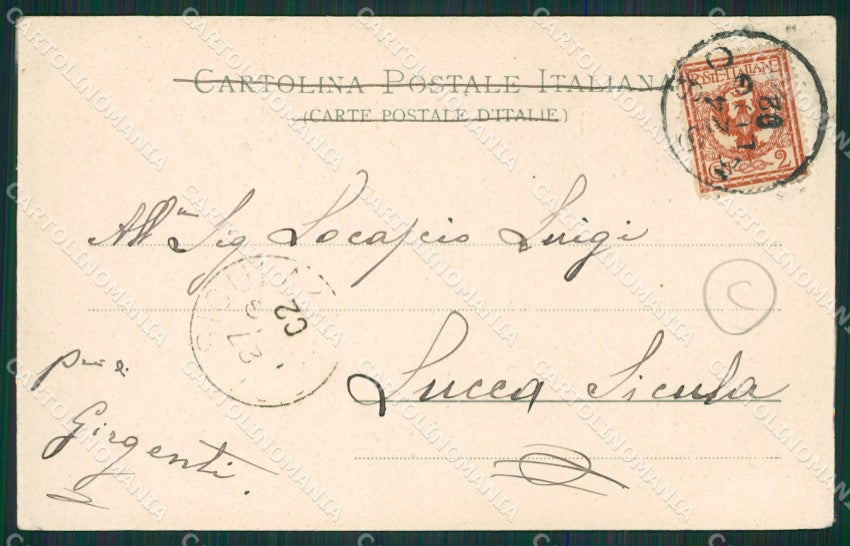 CARTOLINA POSTALE ITALIANA
(CARTE POSTALE D'ITALIE)
POSTE ITALIANE
2
24
02
All'm Sig Locascio Luigi
02
C
Lucca Sicula
Girgenti.
CARTOLINOMANIA